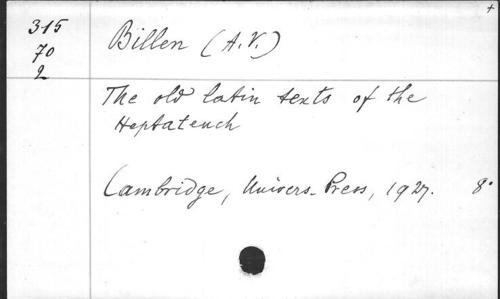 +
315
70
2
Billen (A.V.)
The old latin texts of the
Heptateuch
Cambridge, Univers. Press, 1927. 8°